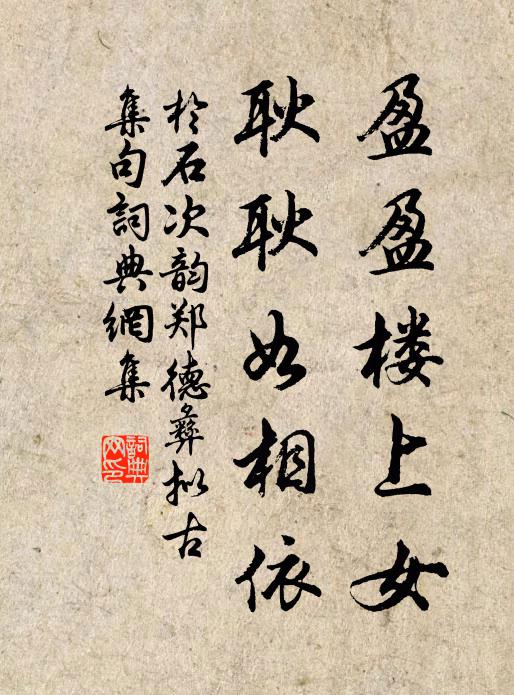 盈盈楼上女
耿耿如相依
於石次韵郑德彝拟古
集句詞典網集
詞典网印